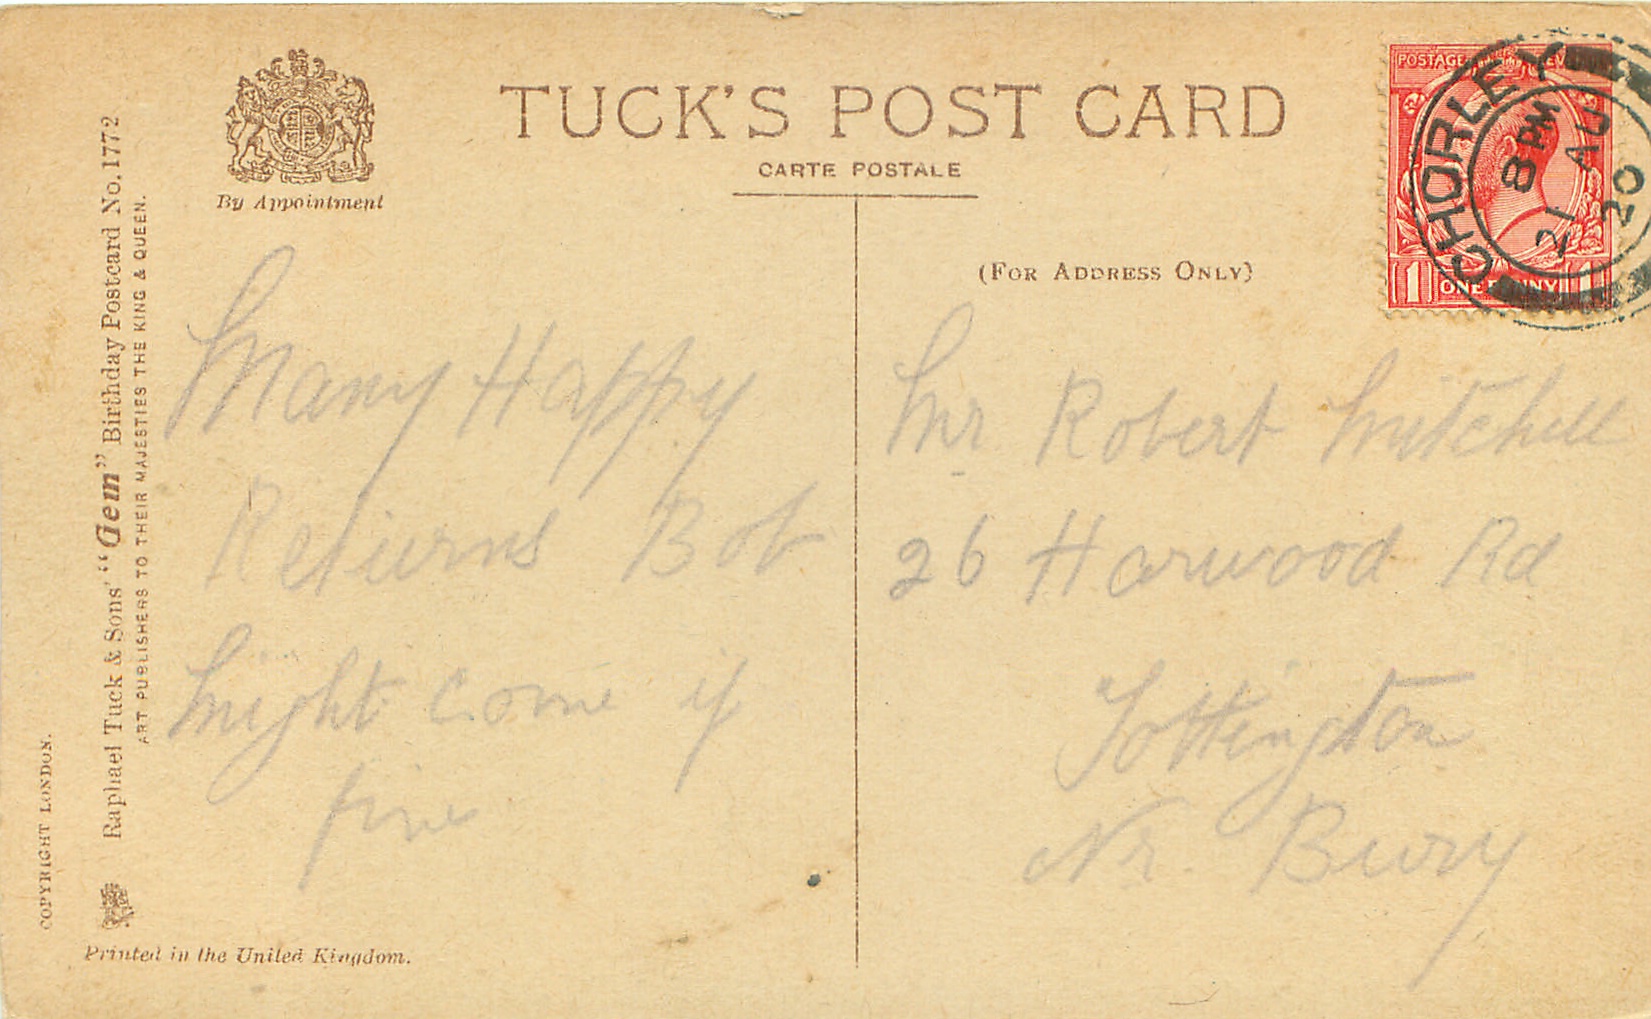 TUCK'S POST CARD
CARTE POSTALE
By Appointment
(FOR ADDRESS ONLY)
POSTAGE
1 ONE PENNY 1
CHORLEY
8 PM
21 AU
20
Many Happy
Returns Bob
Might come if
fine
Mr Robert Mitchell
26 Harwood Rd
Tottington
Nr Bury
COPYRIGHT LONDON.
Raphael Tuck & Sons' "Gem" Birthday Postcard No. 1772
ART PUBLISHERS TO THEIR MAJESTIES THE KING & QUEEN.
Printed in the United Kingdom.